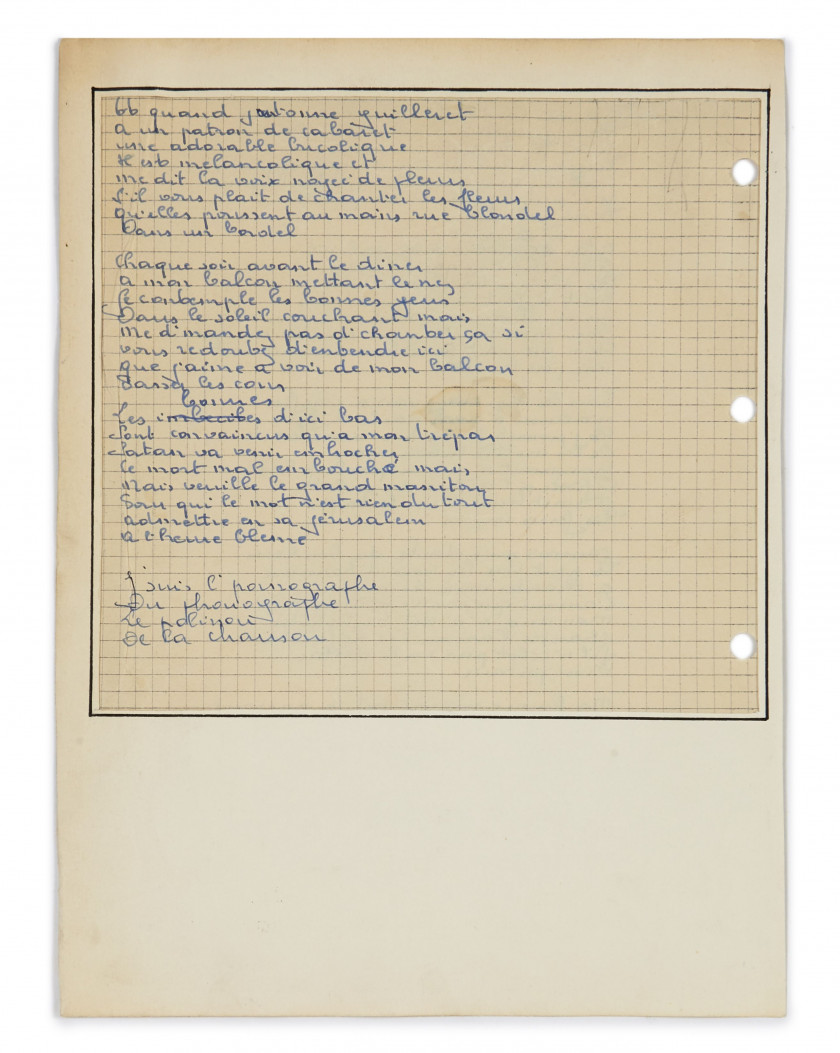 bb quand j'entonne guilleret
a un patron de cabaret
une adorable bucolique
il est melancolique et
me dit la voix noyée de pleurs
s'il vous plait de chanter les fleurs
qu'elles poussent au moins rue blondel
Dans un bordel
Chaque soir avant le diner
a mon balcon mettant le nez
je contemple les bonnes gens
Dans le soleil couchant mais
me d'mandez pas d'chanter ça si
vous redoutez d'entendre ici
que j'aime a voir de mon balcon
Passer les cons
bonnes
Les imbeciles d'ici bas
Sont convaincus qu'a mon trepas
Satan va venir embrocher
Ce mort mal embouché mais,
Mais veuille le grand manitou
Pour qui le mot n'est rien du tout
admettre en sa jérusalem
a l'heure bleme
J'suis l'pornographe
Du phonographe
Le polisson
De la chanson